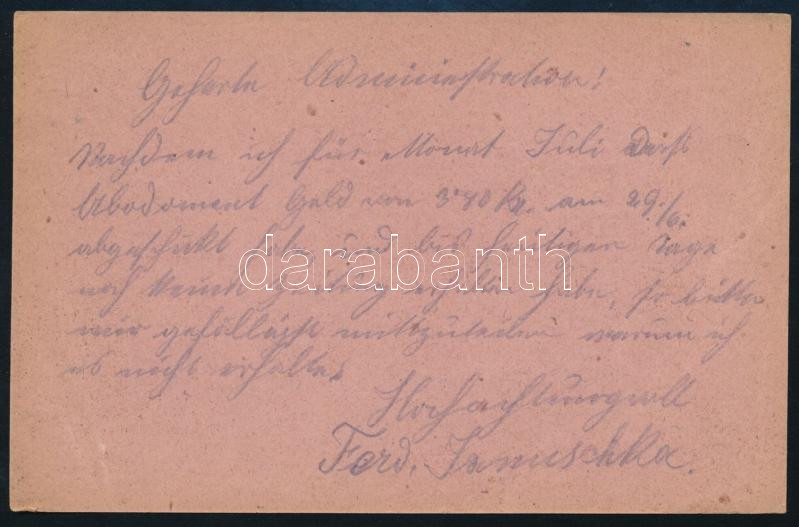 Geherte Administration!
Nachdem ich für Monat Juli Dass
Abodoment Geld von 3'80 Kr. am 29./6.
abgeschikt habe, und bis heutigen Tage
noch keine Zeitung erhalten habe, so bitte
mir gefälligst mittzuteilen warum ich
es nicht erhalte.
Hochachtungsvoll
Ferd. Januschka.
darabanth